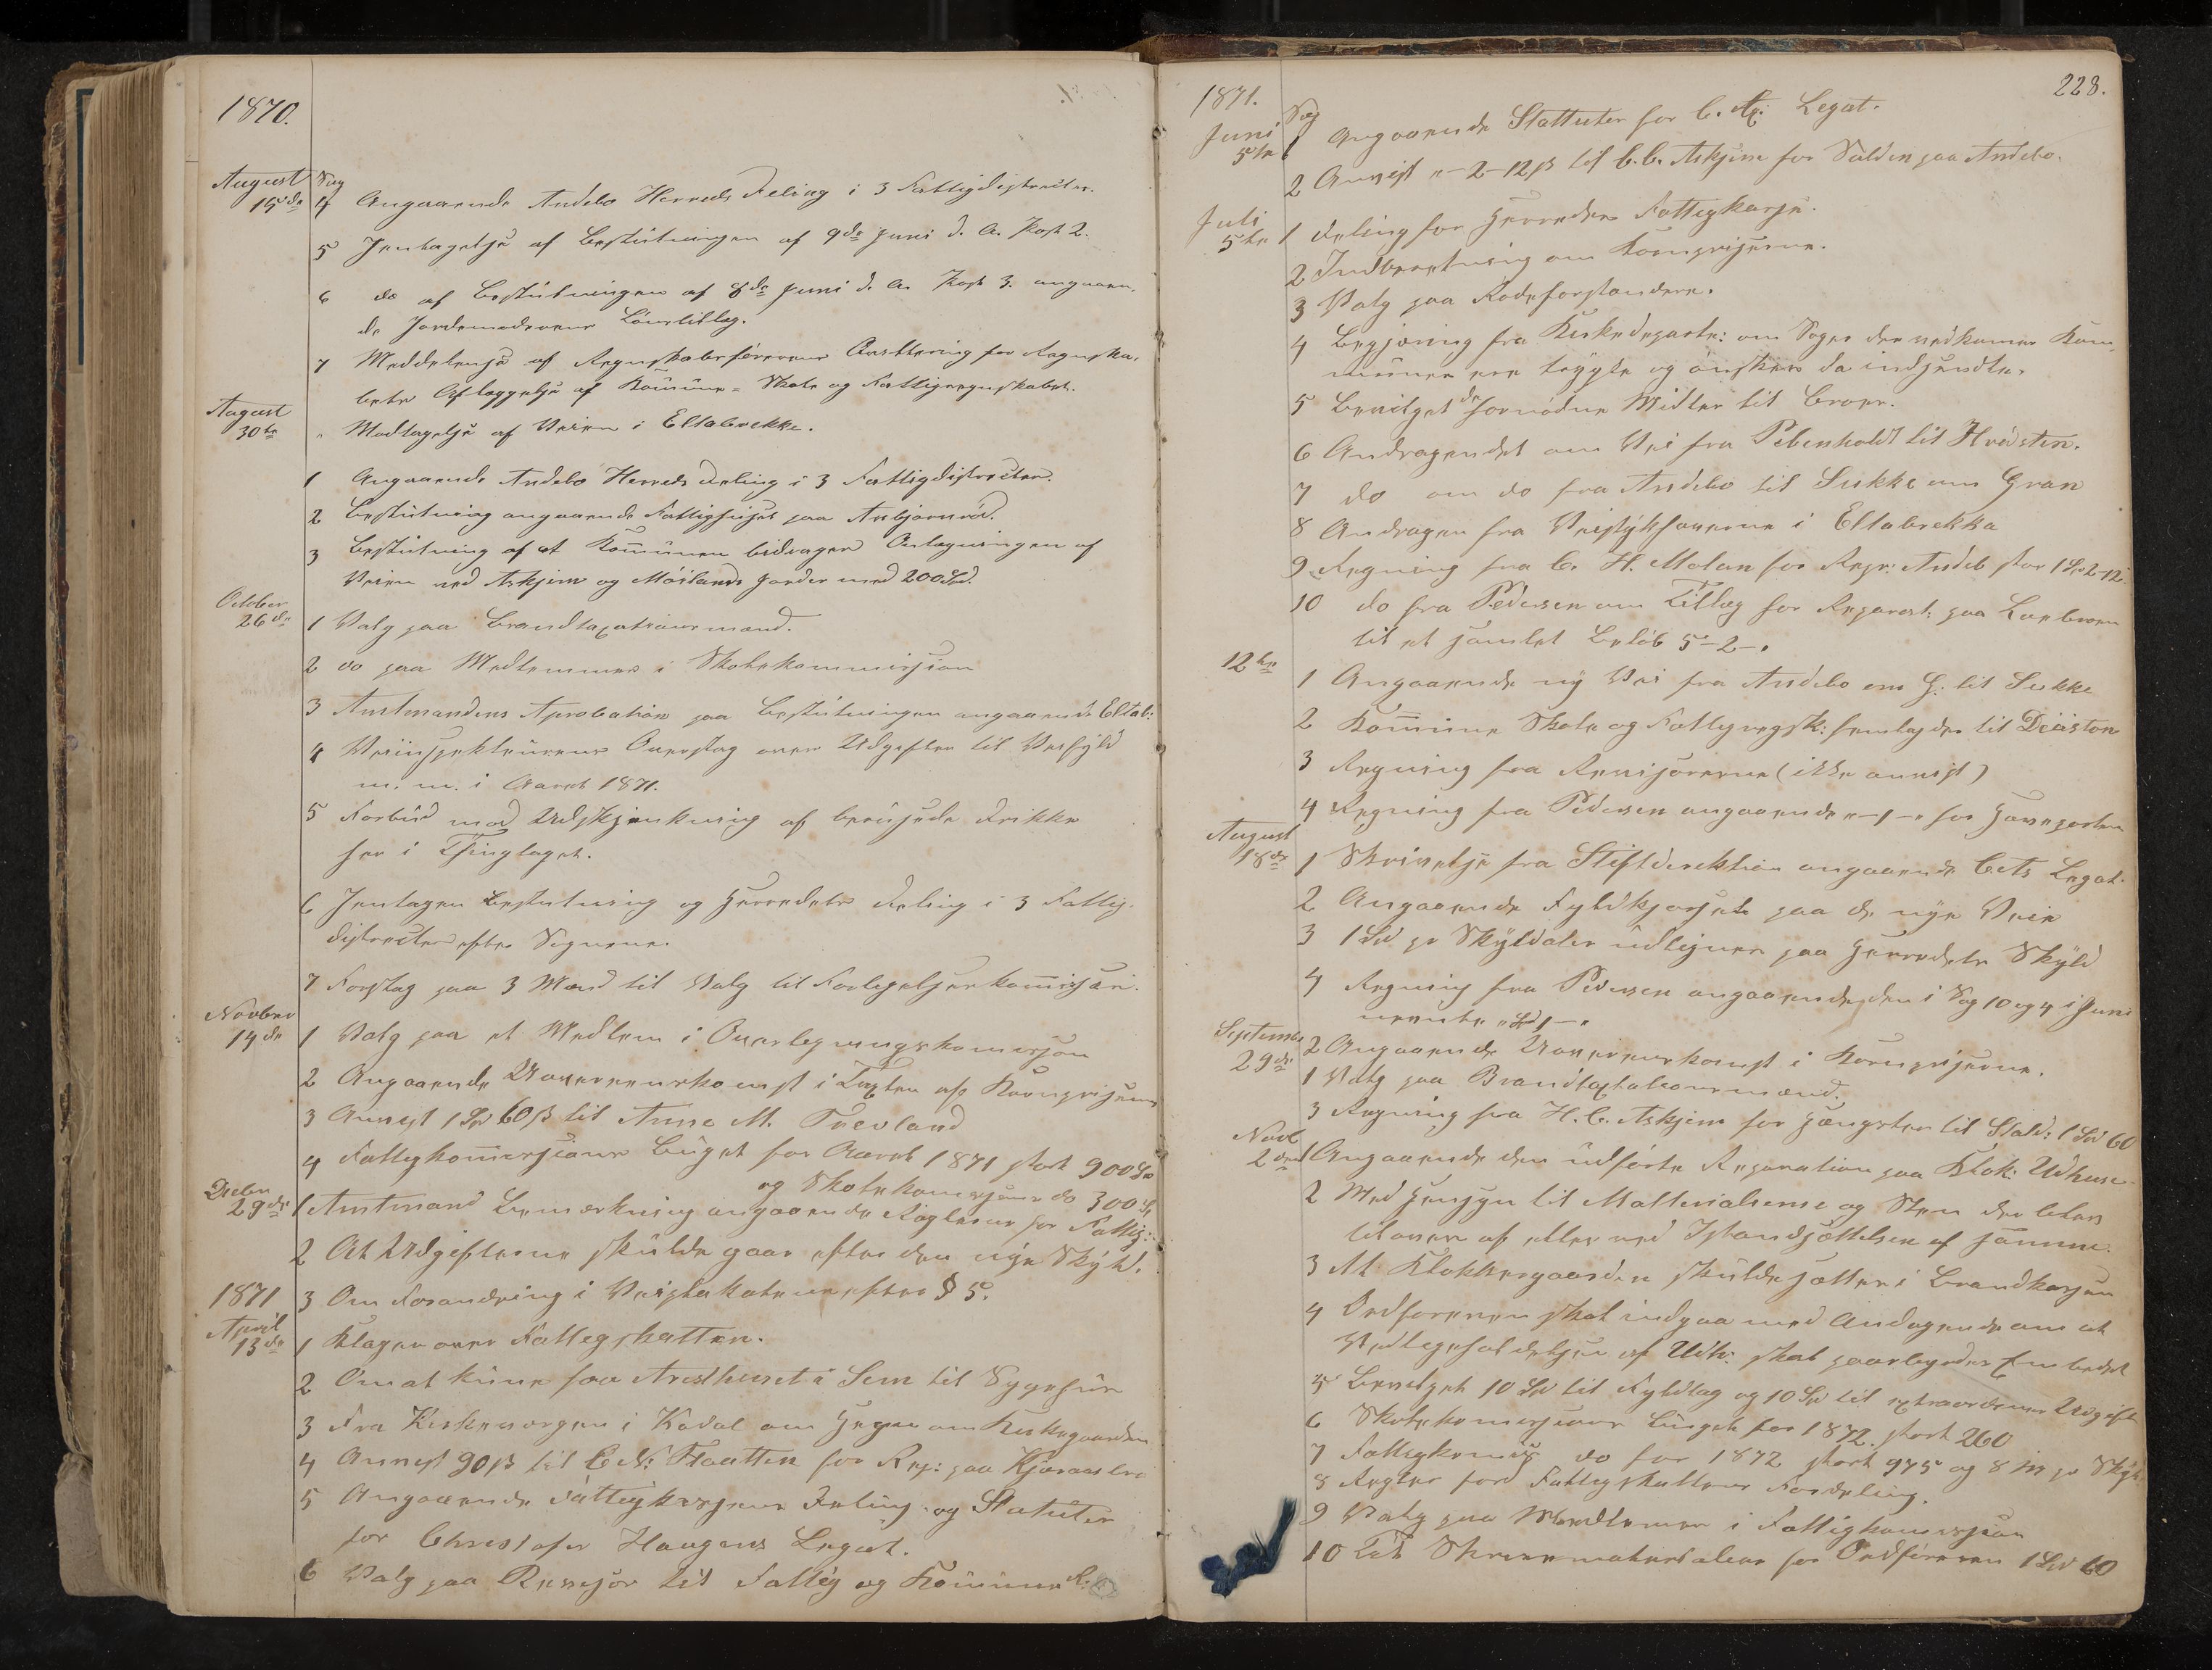 1870.
August Sag
15de 4 Angaaende Andebo Herreds Deling i 3 Fattigdistrecter.
5 Jentagelse af Beslutningen af 9de Juni d. A. Post 2.
6 do af Beslutningen af 8de Juni d. A. Post 3. angaaen,
de Jordemoderens Lönstillæg.
7 Meddelelse af Regnskabsförerens Ansættning for Regnska,
bets Aflæggelse af Kommune- Skole og Fattigregnskabet.
August
30te „ Modtagelse af Veien i Eltabrekke.
1 Angaaende Andebo Herreds Deling i 3 Fattigdistrecter.
2 Beslutning angaaende Fattighuset paa Anbjørnrød.
3 Beslutning af at Kommunen bidrager Omlægningen af
Veien ved Askjem og Möilands Jorder med 200 Spd.
October
26de 1 Valg paa Brandtaxationsmænd.
2 do paa Medlemmer i Skolekommission
3 Amtmandens Aprobation paa Beslutningen angaaende Eltab:
4 Veiinspekteurens Overslag over Udgifter til Veifyld
m. m. i Aaret 1871.
5 Forbud mod Udskjænkning af berusede Drikke
her i Thinglaget.
6 Jentagen Beslutning og Herredets Deling i 3 Fattig-
distrecter efter Sognene.
7 Forslag paa 3 Mænd til Valg til Forligelseskommissær.
Novber
14de 1 Valg paa et Medlem i Overlegningskomisjon
2 Angaaende Uoverenskomst i Taxten af Kornpriserne
3 Anvist 1 Spd 60 ß til Anne M. Trevland
4 Fattigkommisjons Buget for Aaret 1871 stort 900 Spd
og Skolekommisjons do 300 Sp
Decbr
29de 1 Amtmand Bemærkning angaaende Reglerne for Fattig::
2 At Udgifterne skulde gaar efter den nye Skyld.
1871 3 Om Forandring i Veistykkerne efter § 5.
April
13de 1 Klager over Fattigskatten.
2 Om at kune faa Aresthuset i Sem til Sygehus
3 Fra Kirkesorgen i Kodal om Hegn om Kirkegaarden
4 Anvist 90 ß til C. N: Flaatten for Rep: paa Hjeraas bro
5 Angaaende Fattigkassens Deling og Statuter
for Christofer Haugens Legat.
6 Valg paa Revisor til Fattig og Kommune R:
228.
1871. Sag
Juni
5te 1 Angaaende Stattuter for C. H: Legat.
2 Anvist „-2-12 ß til C. C. Askjem for Salden paa Andebo.
Juli
5te 1 Deling for Herredes Fattigkasse.
2 Indberetning om Kornpriserne.
3 Valg paa Rodeforstandere.
4 Begjæring fra Kirkedeparte: om Sager der vedkomer Kom,
muner ere trygte og önskes da indsendte.
5 Bevilget de fornødne Midler til Broer.
6 Andragendet om Vei fra Pebenholdt til Hvidsten.
7 do om do fra Andebo til Sukke om Gran
8 Andragen fra Veistykhaverne i Eltabrekka
9 Regning fra C. H. Molan for Repr: Andeb stor 1 Sp 2-12
10 do fra Pedersen om Tillæg for Reparat: paa Loebroen
til et samlet Belöb 5-2-„
12te 1 Angaaende ny Vei fra Andebo om G: til Sukke
2 Kommune Skole og Fattigregsk: fremlagdes til
3 Regning fra Revisorerne (ikke anvist)
4 Regning fra Pedersen angaaende „-1-„ for Haveporten
August
18de 1 Skrivelse fra Stiftdirektion angaaende Cets Legat.
2 Angaaende Fyldkjørsel paa de nye Veie
3 1 Spd pr Skyldaler udlignes paa Herredets Skyld
4 Regning fra Pedersen angaaende den i Sag 10 og 4 i Juni
nevnte „Spd 1-„
September
29de 2 Angaaende Uoverenskomst i Kornpriserne.
1 Valg paa Brandtaxtationsmænd.
3 Regning fra H. C. Askjem for Hængsler til Stald: 1 Spd 60
Novb
2den 1 Angaaende den udförte Reparation paa Klok: Udhuse
2 Med Hensyn til Matterialerne og Sten der blev
tilovers af eller ved Istandsættelsen af samme.
3 At Klokkergaarden skulde sættes i Brandkassen
4 Ordföreren skal indgaa med Andragende om at
Vedligeholdelsen af Udh: skal paaligedes Embedet
5 Bevilget 10 Spd til Fyldtag og 10 Spd til extraordinær Udgift
6 Skolekomisjons Buget for 1872. stort 260
7 Fattigkomis do for 1872 stort 975 og 8 pr Skyl
8 Regler for Fattigskattens Fordeling.
9 Valg paa Medlemer i Fattigkomisjon
10 Til Skrivematerialier for Ordföreren 1 Spd 60